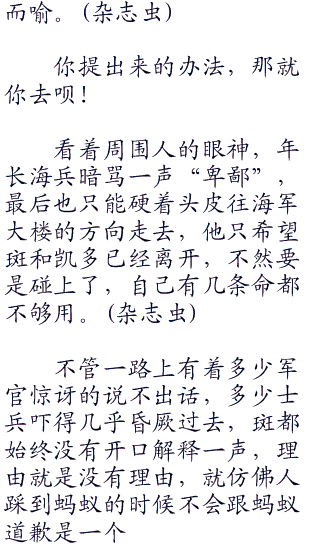 而喻。(杂志虫)
你提出来的办法，那就
你去呗！
看着周围人的眼神，年
长海兵暗骂一声“卑鄙”，
最后也只能硬着头皮往海军
大楼的方向走去，他只希望
斑和凯多已经离开，不然要
是碰上了，自己有几条命都
不够用。(杂志虫)
不管一路上有着多少军
官惊讶的说不出话，多少士
兵吓得几乎昏厥过去，斑都
始终没有开口解释一声，理
由就是没有理由，就仿佛人
踩到蚂蚁的时候不会跟蚂蚁
道歉是一个